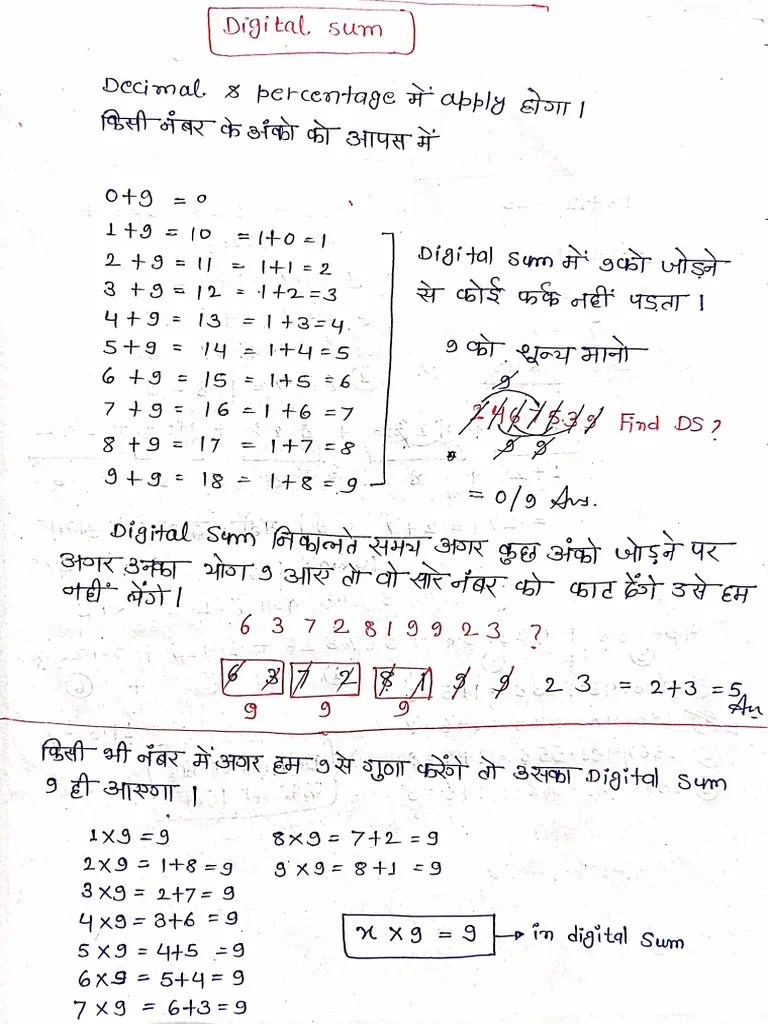 Digital sum
Decimal & percentage में apply होगा।
किसी नंबर के अंको को आपस में
0+9 = 0
1+9 = 10 = 1+0 = 1
2 +9 = 11 = 1+1 = 2
3 +9 = 12 = 1+2 = 3
4+9 = 13 = 1+3=4
5+9 = 14 = 1+4=5
6 +9 = 15 = 1+5 = 6
7 +9 = 16 = 1+6 = 7
8 +9 = 17 = 1+7 = 8
9+9 = 18 = 1+8 = 9
Digital Sum में 9 को जोड़ने
से कोई फर्क नहीं पड़ता।
9 को शून्य मानो
9
2467539 Find DS?
9 9
= 0/9 Ans.
Digital Sum निकालते समय अगर कुछ अंको जोड़ने पर
अगर उनका योग 9 आए तो वो सारे नंबर को काट देंगे उसे हम
नहीं लेंगे।
6 3 7 2 8 1 9 9 2 3 ?
6 3 7 2 8 1 9 9 2 3 = 2+3 = 5
Ans
9 9 9
किसी भी नंबर में अगर हम 9 से गुणा करेंगे तो उसका Digital Sum
9 ही आएगा।
1×9 = 9
2×9 = 1+8 = 9
3×9 = 2+7 = 9
4×9 = 3+6 = 9
5×9 = 4+5 = 9
6×9 = 5+4 = 9
7×9 = 6+3 = 9
8×9 = 7+2 = 9
9×9 = 8+1 = 9
x × 9 = 9 → in digital Sum